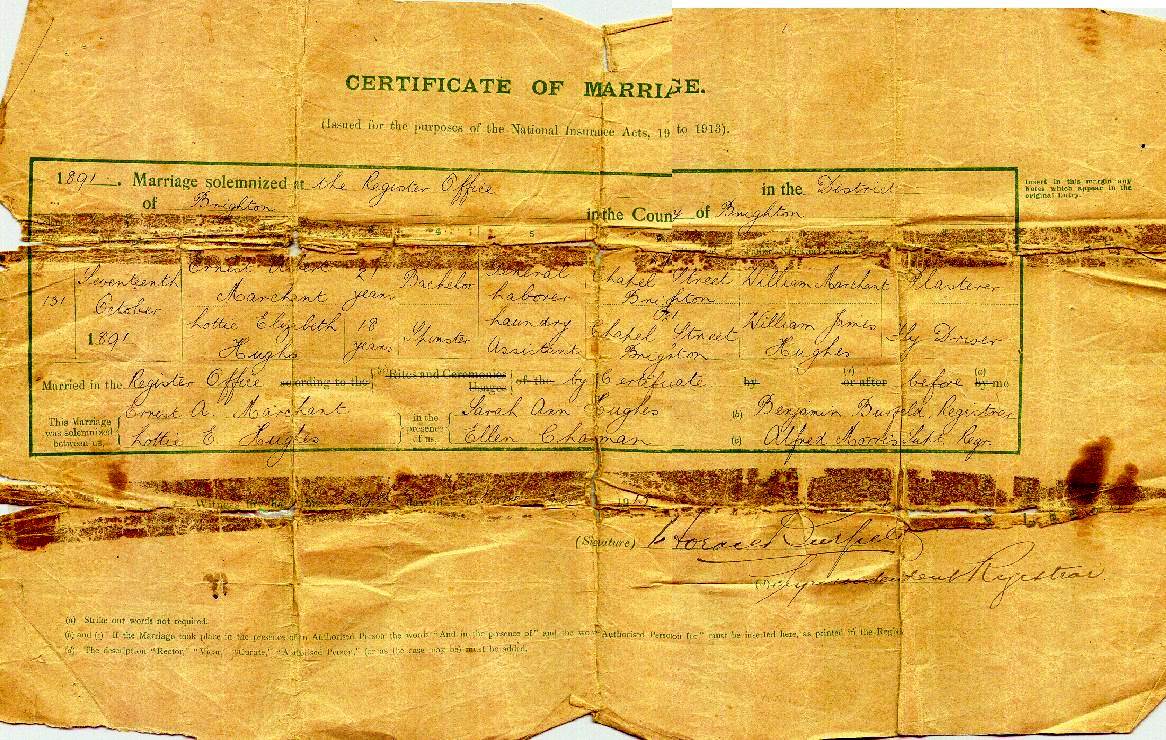 CERTIFICATE OF MARRIAGE.
(Issued for the purposes of the National Insurance Acts, 19 to 1913).
1891. Marriage solemnized at the Register Office in the District
of Brighton in the County of Brighton
Insert in this margin any
Notes which appear in the
original Entry.
4 5
Seventeenth Ernest Albert 21 Bachelor General Chapel Street William Marchant Plasterer
131 October Marchant years laborer Brighton
1891 Lottie Elizibeth 18 Spinster Laundry Chapel Street William James Fly Driver
Hughes years Assistant Brighton Hughes
Married in the Register Office according to the Rites and Ceremonies of the by Certificate by or after before by me
Usages
This Marriage
was solemnized
between us,
Ernest A. Marchant
Lottie E Hughes
in the
presence
of us,
Sarah Ann Hughes
Ellen Chapman
(b) Benjamin Burfield Registrar
(c) Alfred Morris Supt Regr.
(Signature) Horace Burfield
Superintendent Registrar
(a) Strike out words not required.
(b) and (c) If the Marriage took place in the presence of an Authorised Person the words "And in the presence of" and the word "Authorised Person for" must be inserted here, as printed in the
(d) The description "Rector," "Vicar," "Curate," "Authorised Person," (or as the case may be) must be added.